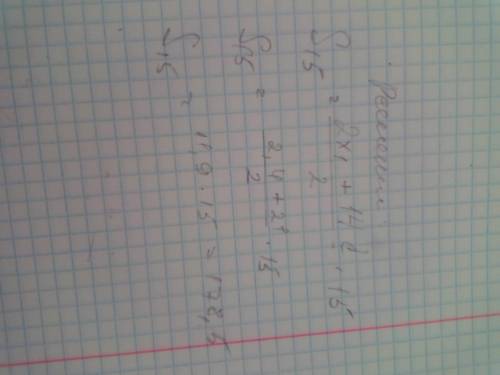 Решение:
S₁₅ = (2x₁ + 14d)/2 · 15
S₁₅ = (2,4 + 21)/2 · 15
S₁₅ = 11,9 · 15 = 178,5